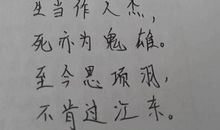 生当作人杰，
死亦为鬼雄。
至今思项羽，
不肯过江东。